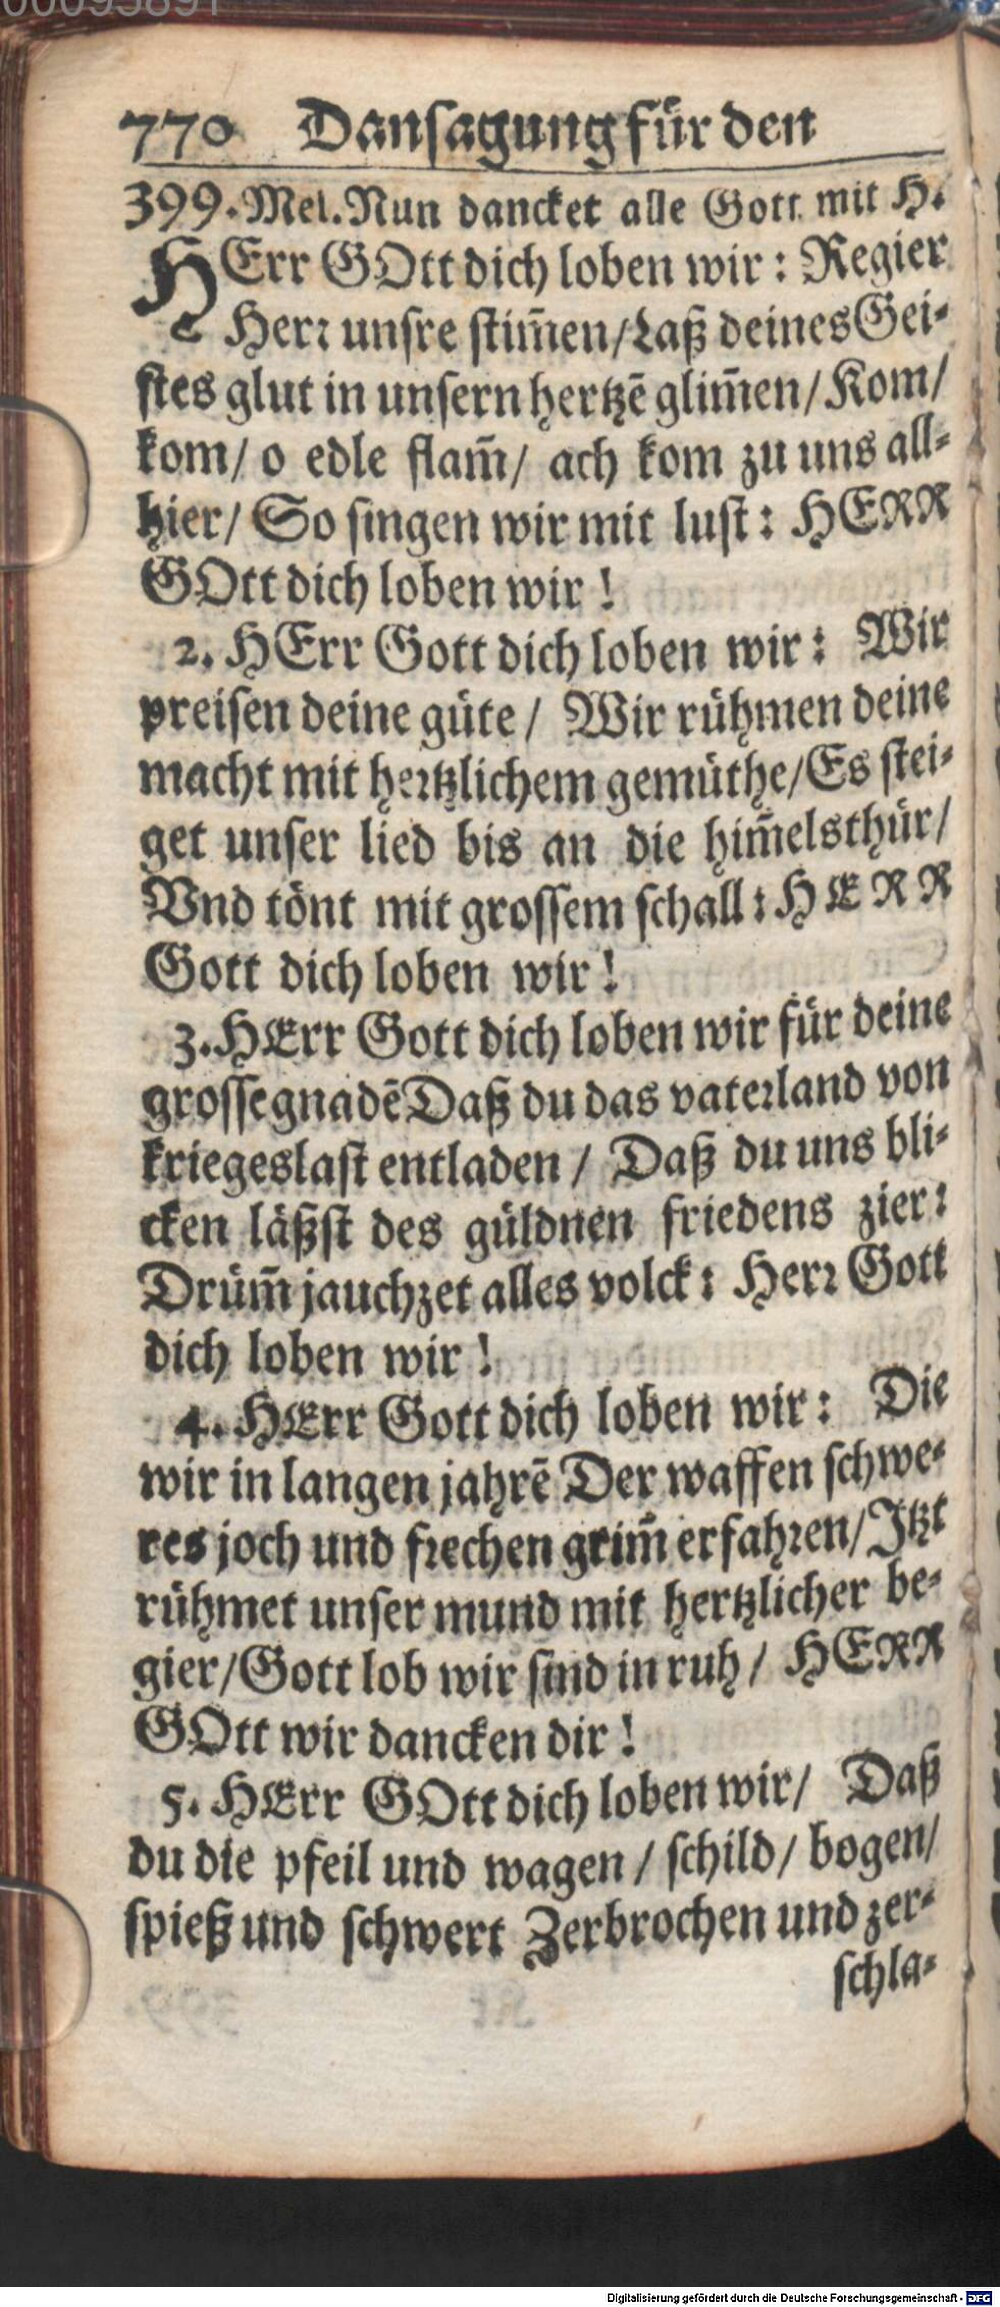 00095891
770 Dansagung für den
399. Mel. Nun dancket alle Gott mit H.
HErr GOtt dich loben wir: Regier
Herr unsre stim̃en/Laß deines Gei-
stes glut in unsern hertzẽ glim̃en/Kom/
kom/ o edle flam̃/ ach kom zu uns all-
hier/ So singen wir mit lust: HERR
GOtt dich loben wir!
2. HErr Gott dich loben wir: Wir
preisen deine güte/ Wir rühmen deine
macht mit hertzlichem gemüthe/Es stei-
get unser lied bis an die him̃elsthür/
Vnd tönt mit grossem schall: HERR
Gott dich loben wir!
3. HErr Gott dich loben wir für deine
grosse gnadẽ Daß du das vaterland von
kriegeslast entladen/ Daß du uns bli-
cken läßst des güldnen friedens zier:
Drüm̃ jauchzet alles volck: Herr Gott
dich loben wir!
4. HErr Gott dich loben wir: Die
wir in langen jahrẽ Der waffen schwe-
res joch und frechen grim̃ erfahren/Itzt
rühmet unser mund mit hertzlicher be-
gier/Gott lob wir sind in ruh/ HERR
GOtt wir dancken dir!
5. HErr GOtt dich loben wir/ Daß
du die pfeil und wagen/ schild/ bogen/
spieß und schwert Zerbrochen und zer-
schla-
Digitalisierung gefördert durch die Deutsche Forschungsgemeinschaft - DFG